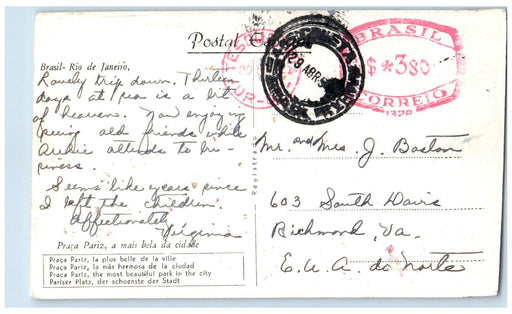 Postal
BRASIL
$ *380
CORREIO
1328
29 ABR
Brasil- Rio de Janeiro,
Lovely trip down. Thirteen
days at sea is a bit
of heavens. Now enjoying
seeing old friends while
Archie attends to bu-
siness.
Seems like years since
I left the children.
Affectionately
Virginia
Mr. and Mrs. J. Boston
603 South Davis
Richmond, Va.
E.U.A. do Norte
Praça Pariz, a mais bela da cidade
Praça Pariz, la plus belle de la ville
Praça Pariz, la más hermosa de la ciudad
Praça Pariz, the most beautiful park in the city
Pariser Platz, der schoenste der Stadt